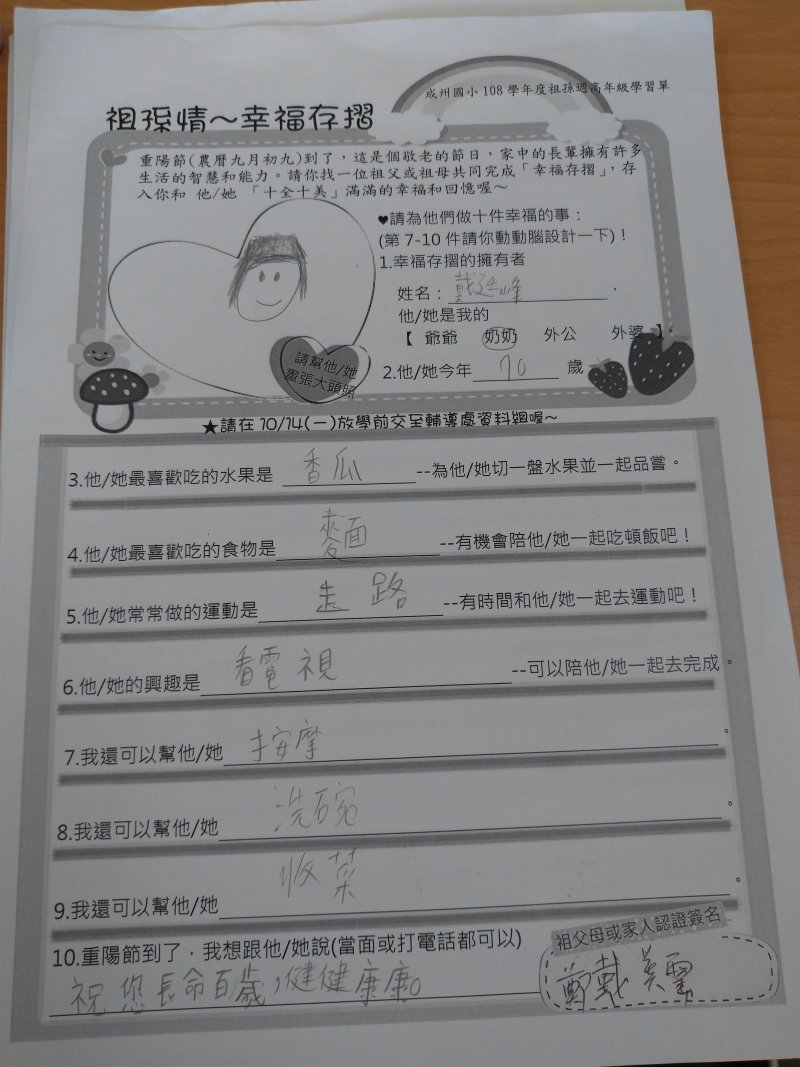 成州國小108學年度祖孫週高年級學習單
祖孫情～幸福存摺
重陽節(農曆九月初九)到了，這是個敬老的節日，家中的長輩擁有許多
生活的智慧和能力。請你找一位祖父或祖母共同完成「幸福存摺」，存
入你和 他/她 「十全十美」滿滿的幸福和回憶喔～
♥請為他們做十件幸福的事：
(第 7-10 件請你動動腦設計一下)！
1.幸福存摺的擁有者
姓名：戴延峰.
他/她是我的
【 爺爺 奶奶 外公 外婆 】。
請幫他/她
畫張大頭照
2.他/她今年 70 歲
★請在 10/14(一)放學前交至輔導處資料組喔～
3.他/她最喜歡吃的水果是 香瓜 --為他/她切一盤水果並一起品嘗。
4.他/她最喜歡吃的食物是 麵 --有機會陪他/她一起吃頓飯吧！
5.他/她常常做的運動是 走路 --有時間和他/她一起去運動吧！
6.他/她的興趣是 看電視 --可以陪他/她一起去完成。
7.我還可以幫他/她 按摩 。
8.我還可以幫他/她 洗碗 。
9.我還可以幫他/她 收菜 。
10.重陽節到了，我想跟他/她說(當面或打電話都可以)
祝您長命百歲，健健康康。
祖父母或家人認證簽名
鄭戴美